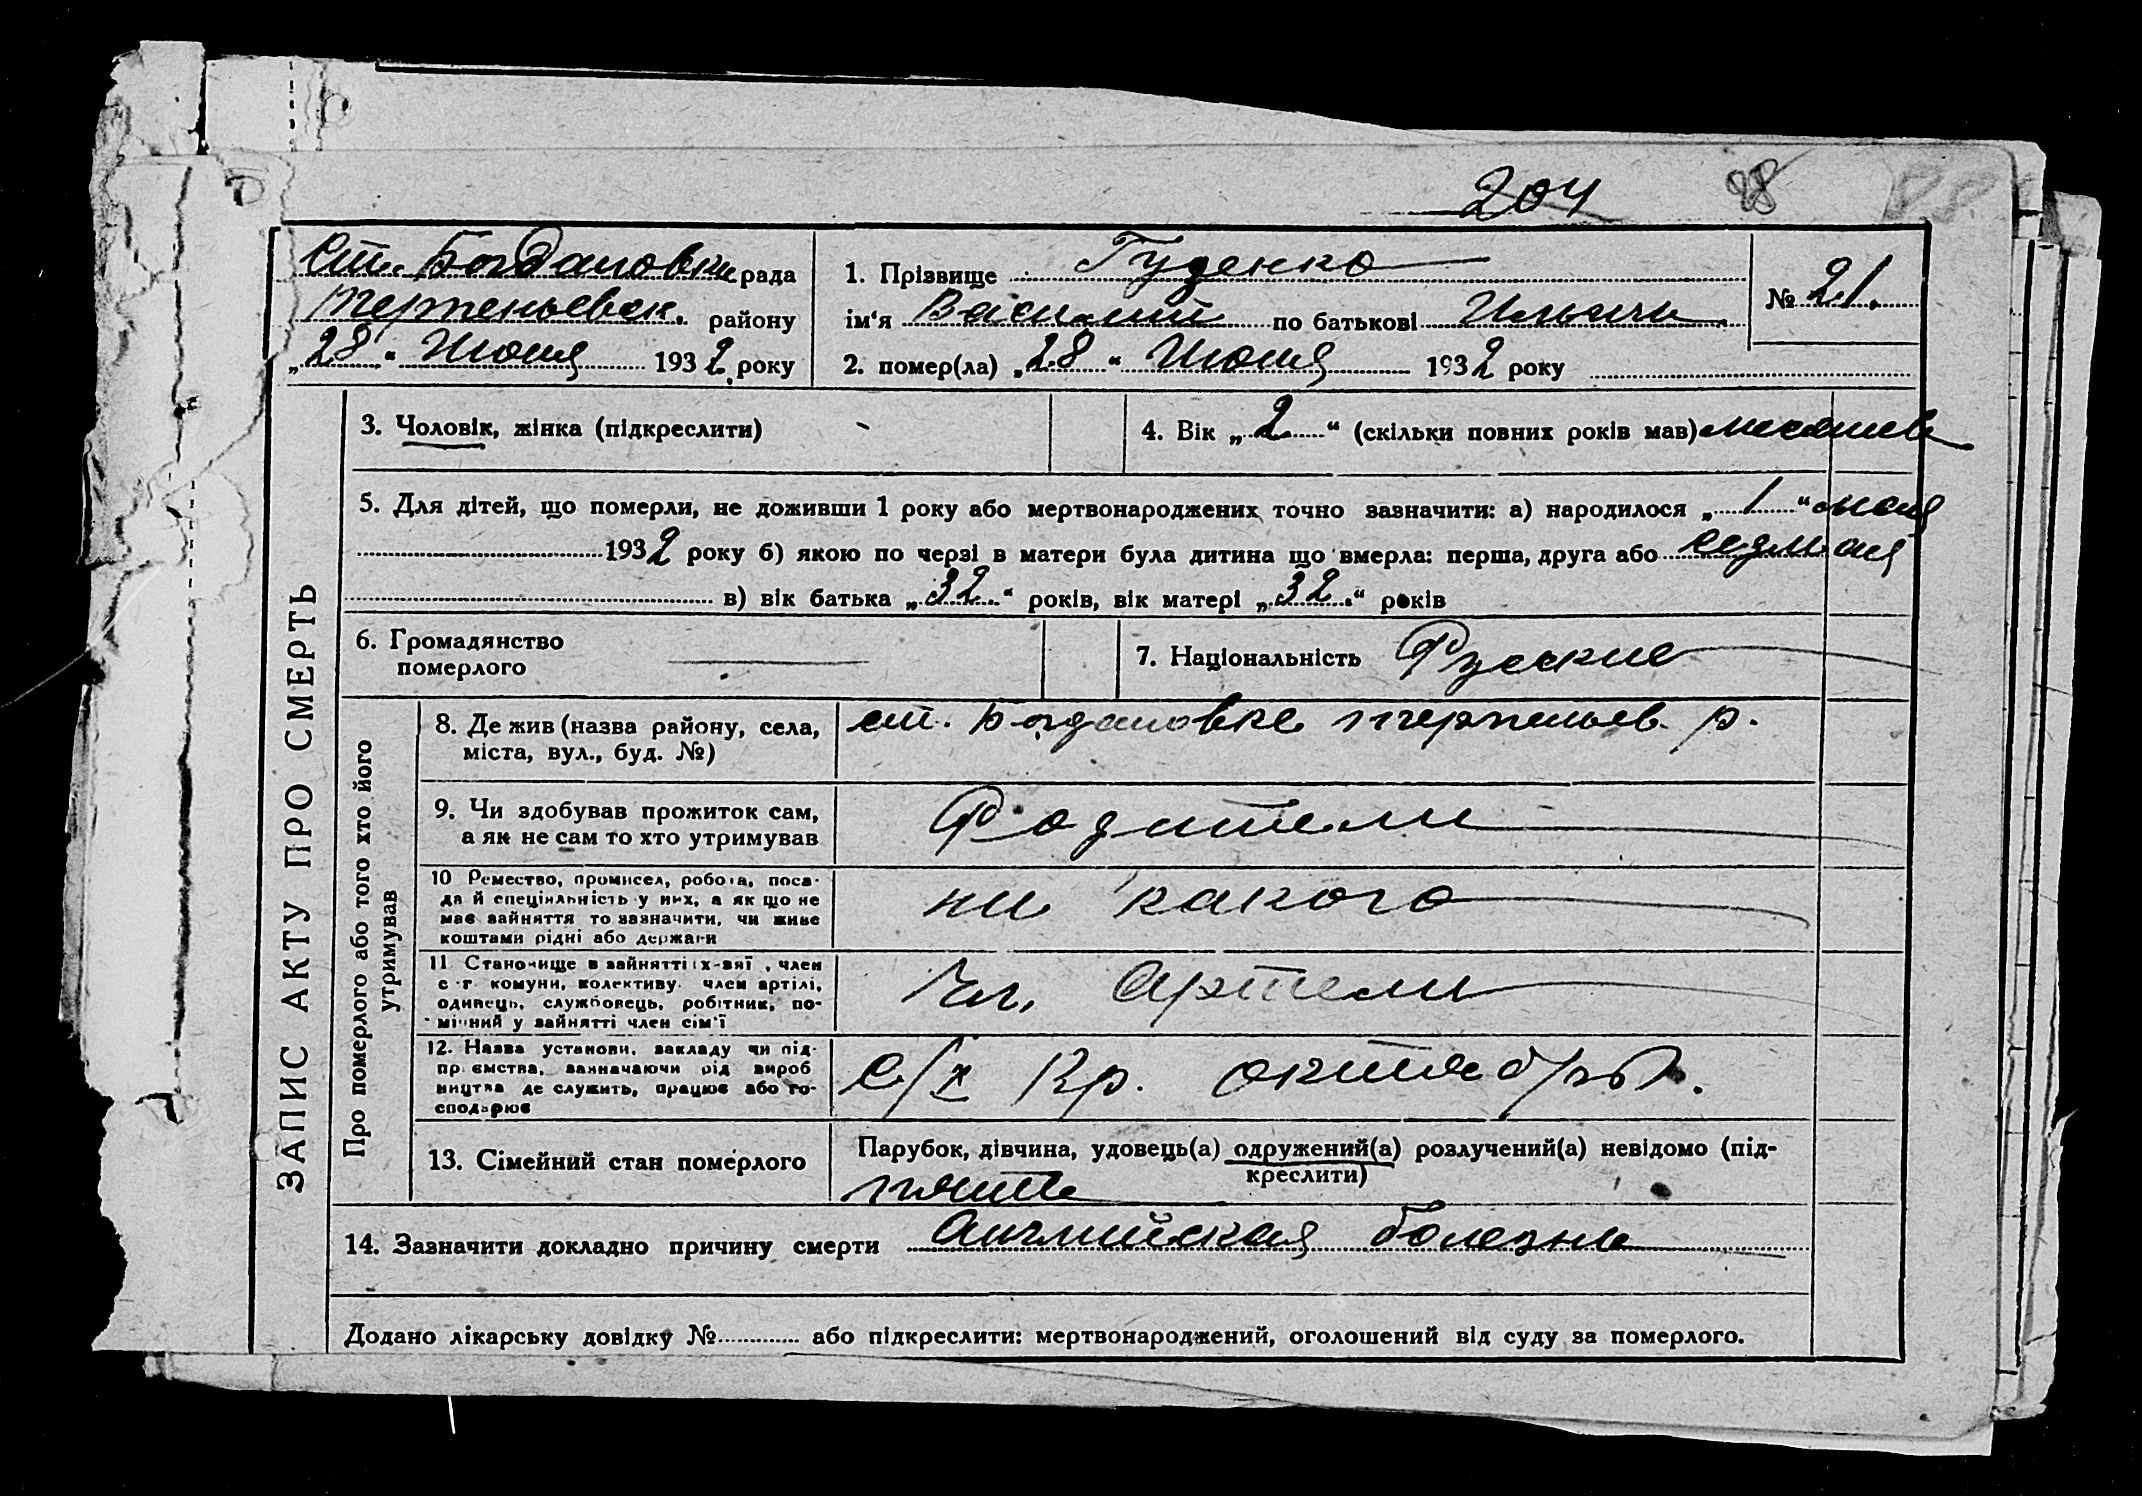 204 88
Ст. Богдановки рада
Терпеньевск. району
„28“ Июня 1932 року
1. Прізвище Гуденко
ім‘я Василий по батькові Ильич
№ 21.
2. помер(ла) „28“ Июня 1932 року
ЗАПИС АКТУ ПРО СМЕРТЬ
3. Чоловік, жінка (підкреслити)
4. Вік „2“ (скільки повних років мав) месяцев
5. Для дітей, що померли, не доживши 1 року або мертвонароджених точно зазначити: а) народилося „1“ мая
1932 року б) якою по черзі в матери була дитина що вмерла: перша, друга або седмая
в) вік батька „32“ років, вік матері „32“ років
6. Громадянство
померлого
7. Національність Руские
Про померлого або того хто його
утримував
8. Де жив (назва району, села,
міста, вул., буд. №)
ст. Богдановке терпеньев. р.
9. Чи здобував прожиток сам,
а як не сам то хто утримував
Родители
10 Ремество, промисел, робота, поса-
да й спеціяльність у них, а як що не
має зайняття то зазначити, чи живе
коштами рідні або держави
ни какого
11 Становище в зайнятті їх-зяї , член
с-г комуни, колективу член артілі,
одинець, службовець, робітник, по-
мічний у зайнятті член сім‘ї
Чл. Артели
12. Назва установи, закладу чи під-
приємства, зазначаючи рід вироб
ництва де служить, працює або го-
сподарює
с/х Кр. октябрь.
13. Сімейний стан померлого
Парубок, дівчина, удовець(а) одружений(а) розлучений(а) невідомо (під-
креслити)
14. Зазначити докладно причину смерти Английская болезнь
Додано лікарську довідку № або підкреслити: мертвонароджений, оголошений від суду за померлого.